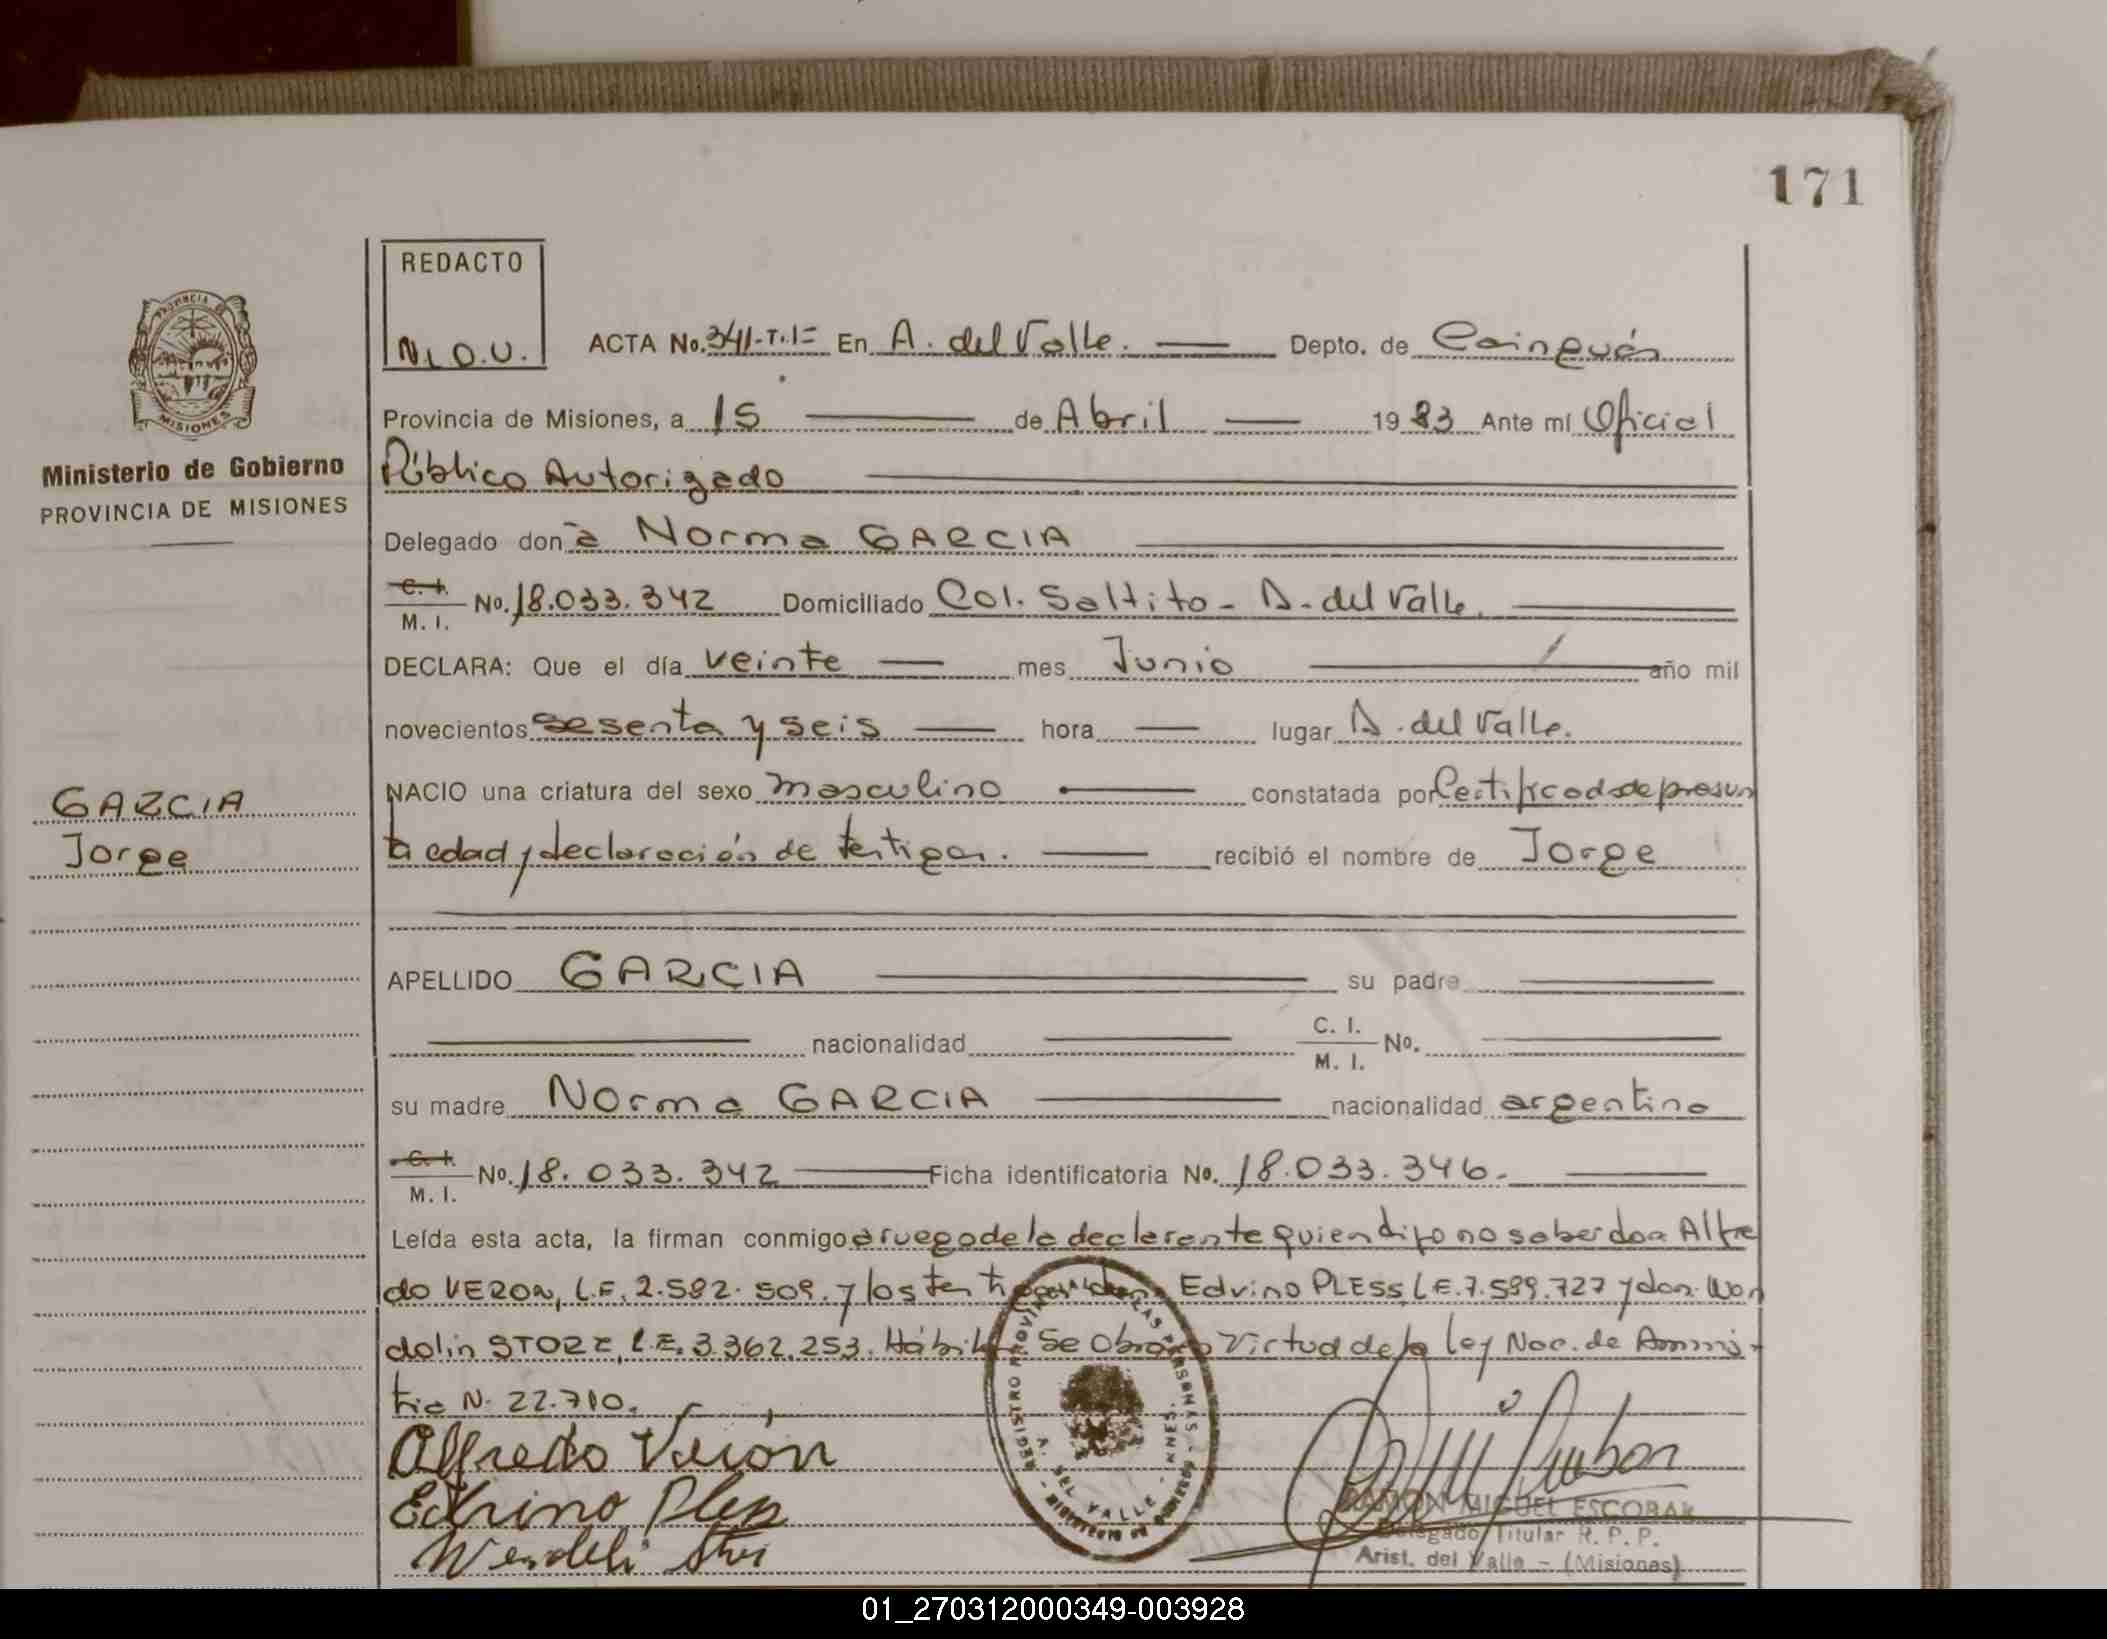 171
REDACTO
N.D.V.
ACTA No. 341-T.I= En A. del Valle. Depto. de Cainguás
Provincia de Misiones, a 15 de Abril 1983 Ante mí Oficial
Público Autorizado
Delegado don a Norma GARCIA
C. I. M. I. No. 18.033.342 Domiciliado Col. Saltito - A. del Valle.
DECLARA: Que el día veinte mes Junio año mil
novecientos sesenta y seis hora lugar A. del Valle.
NACIO una criatura del sexo masculino constatada por Certificado de presun
ta edad y declaración de testigos. recibió el nombre de Jorge
APELLIDO GARCIA su padre
nacionalidad C. I. M. I. No.
su madre Norma GARCIA nacionalidad argentina
C. I. M. I. No. 18.033.342 Ficha identificatoria No. 18.033.346.
Leída esta acta, la firman conmigo a ruego de la declarante quien dijo no saber don Alfre
do VERON, L.E. 2.582.509. y los testigos don Edvino PLESS L.E. 7.589.727 y don Won
dolin STORZ, L.E. 3.362.253. Hábiles Se Obra en Virtud de la ley Nac. de Amnis
tia N. 22.710.
Alfredo Verón
Edvino Pless
RAMON MIGUEL ESCOBAR
Delegado Titular R. P. P.
Arist. del Valle - (Misiones)
PROVINCIA
MISIONES
Ministerio de Gobierno
PROVINCIA DE MISIONES
GARCIA
Jorge
01_270312000349-003928